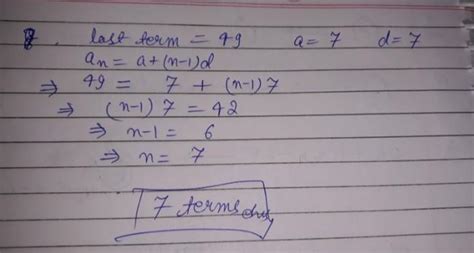 last term = 49 a = 7 d = 7
an = a+(n-1)d
⇒ 49 = 7 + (n-1)7
⇒ (n-1) 7 = 42
⇒ n-1 = 6
⇒ n = 7
7 terms